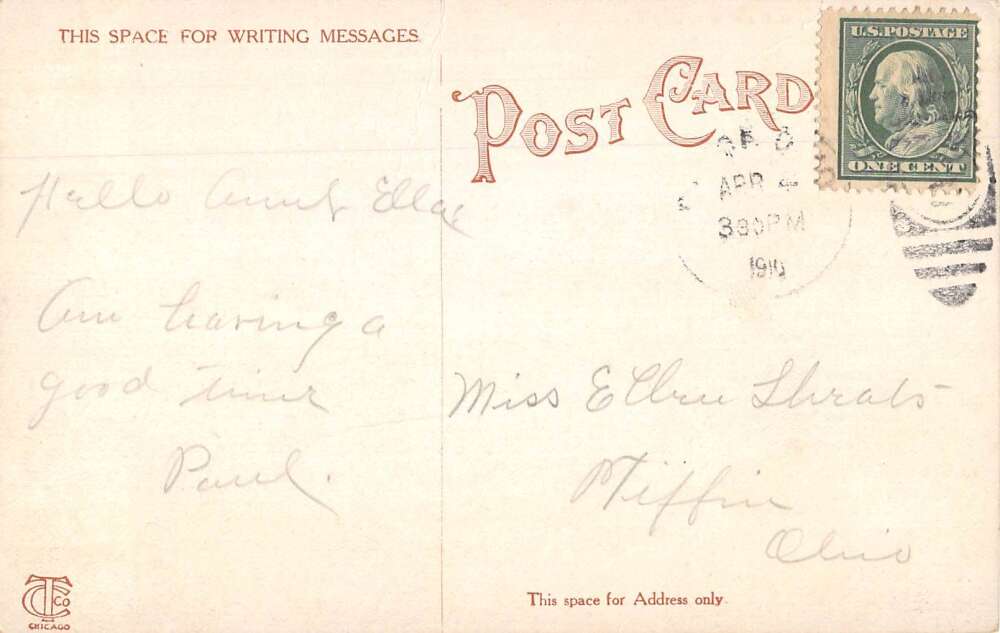 THIS SPACE FOR WRITING MESSAGES.
POST CARD
U.S. POSTAGE
ONE CENT
APR 4
330 PM
1910
Hello Aunt Ella
Am having a
good time
Paul.
Miss Ellen
Tiffin
Ohio
CTCo
CHICAGO
This space for Address only.